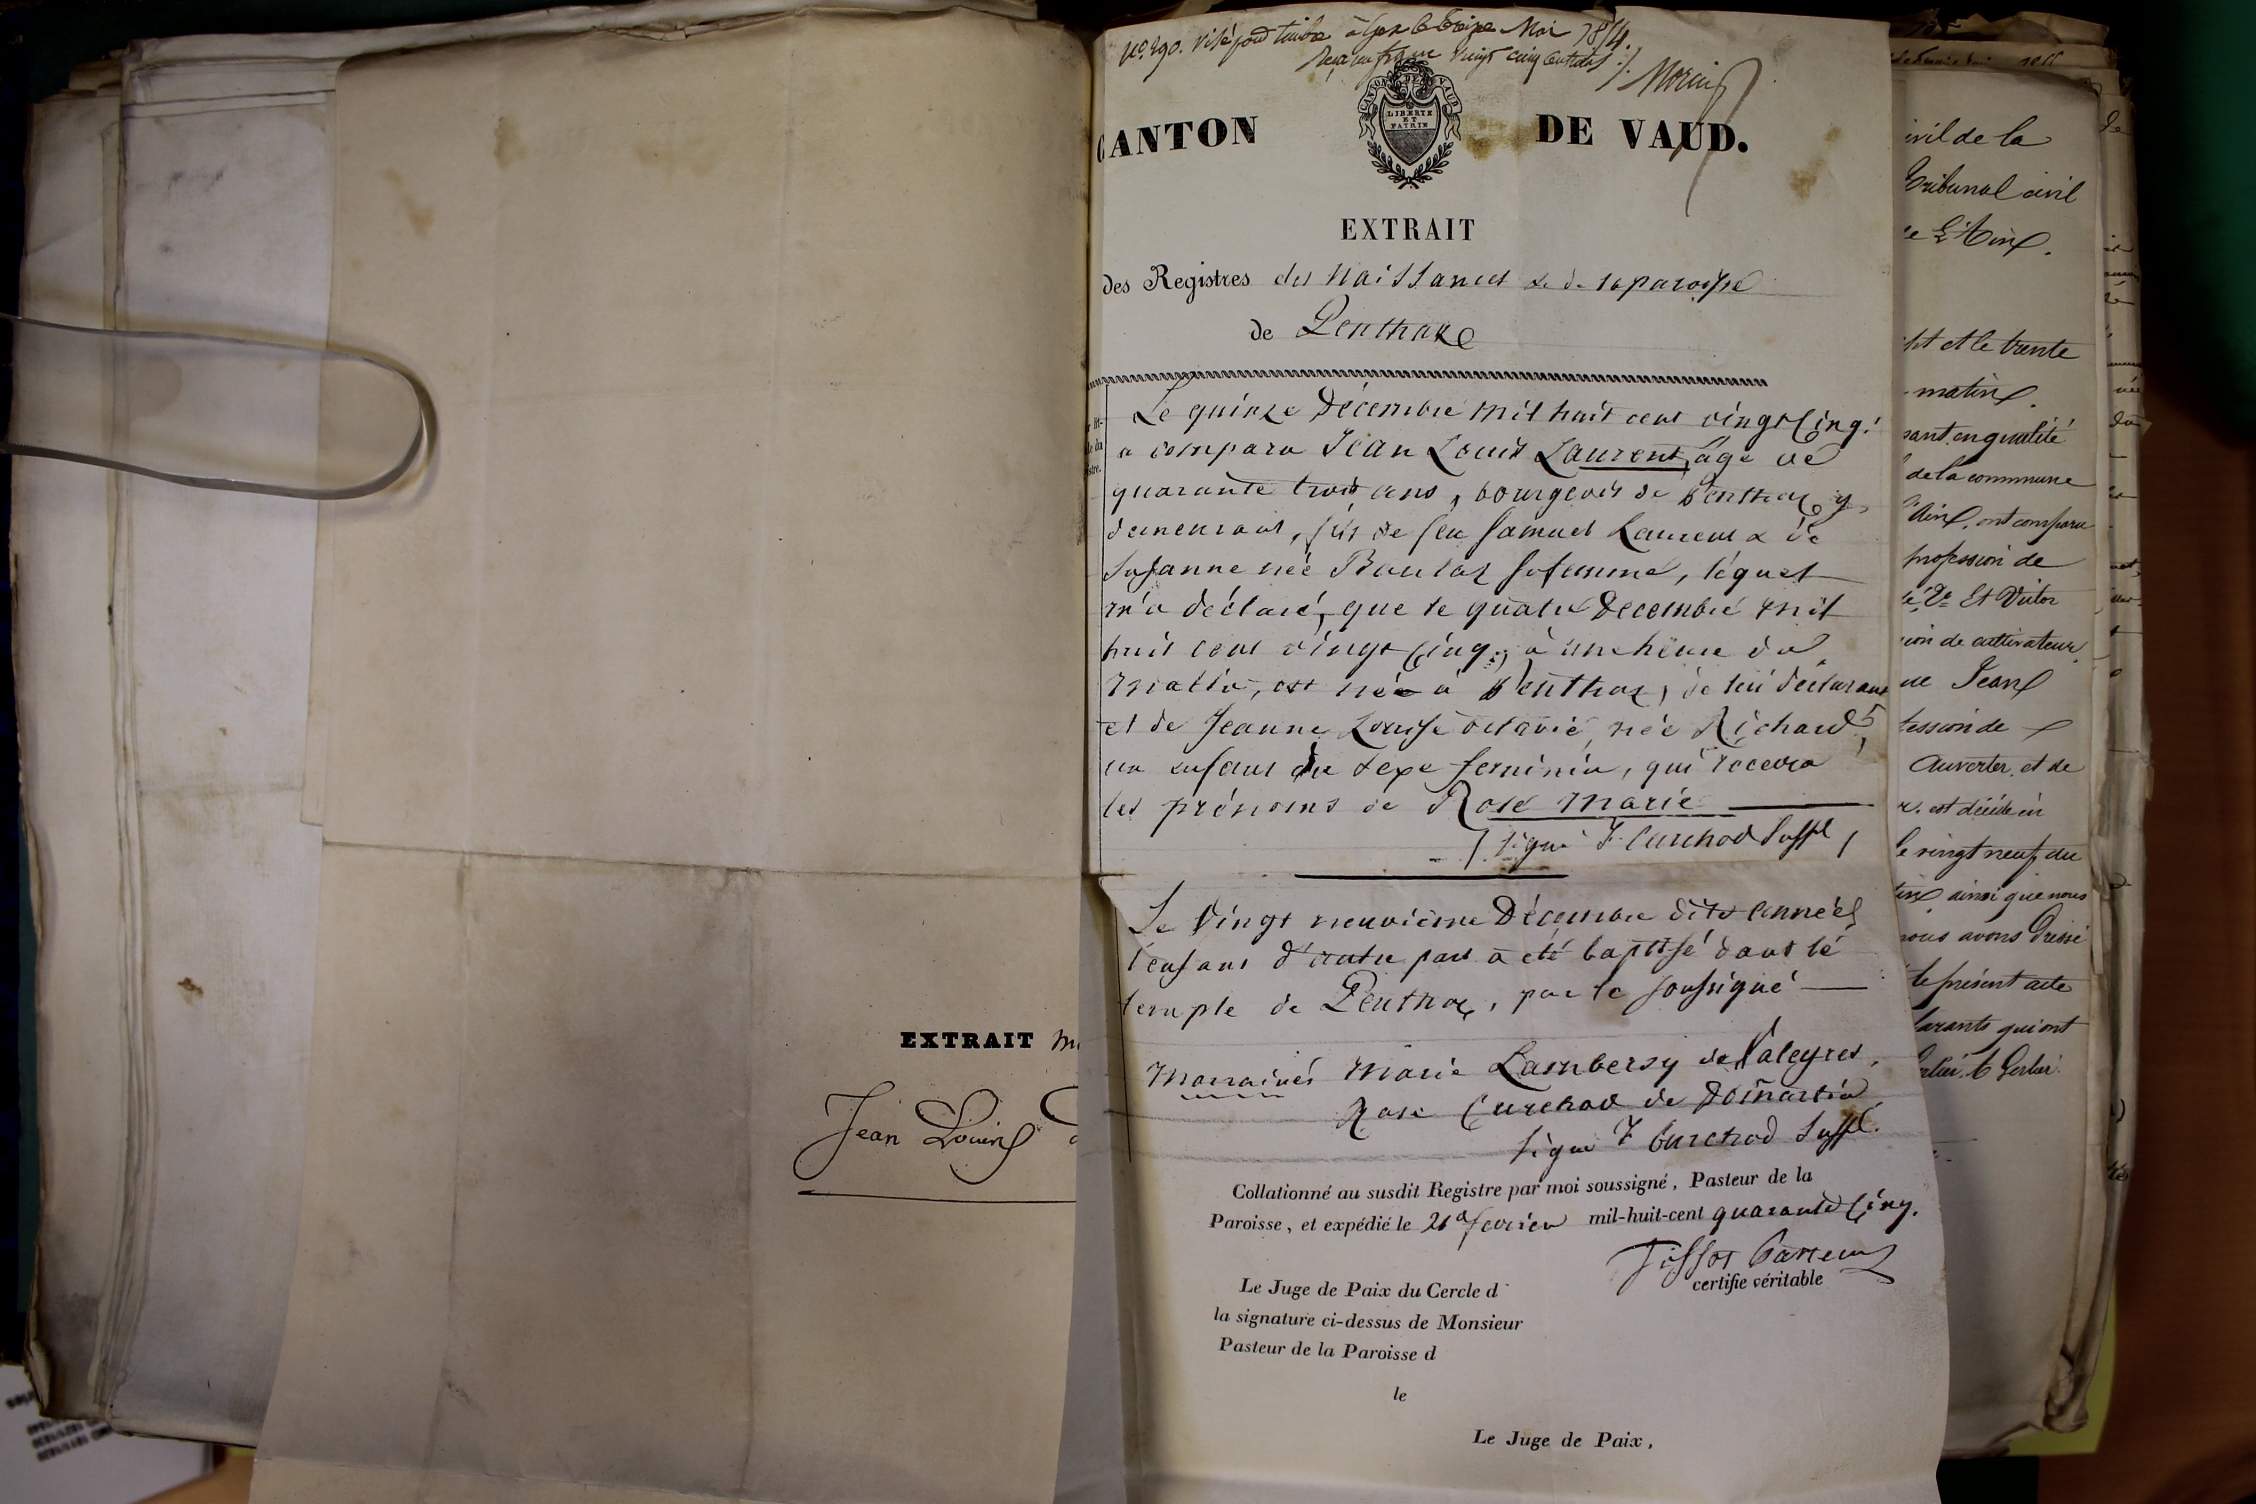 EXTRAIT
Jean Louis
No. 290. Visé pour timbre à Gex le treize Mai
Reçu un franc vingt cinq centimes
CANTON DE VAUD.
CANTON DE VAUD
LIBERTÉ
ET
PATRIE
EXTRAIT
des Registres des Naissances & de la paroisse
de Penthaz
Le quinze Décembre mil huit cent vingt cinq.
a comparu Jean Louis Laurent, âgé de
quarante trois ans, bourgeois de Penthaz y
demeurant, fils de feu Samuel Laurent & de
Susanne née Baulaz sa femme, lequel
m'a déclaré, que le quatre Décembre mil
huit cent vingt cinq, à une heure du
matin, est née à Penthaz, de lui déclarant
et de Jeanne Louise Octavie, née Richard,
un enfant du sexe feminin, qui recevra
les prénoms de Rose Marie
signé F. Curchod Sufft
Le vingt neuvième Décembre dite année
l'enfant d'autre part a été baptisé dans le
temple de Penthaz, par le soussigné
Marraines Marie Lambercy de Valeyres,
Rose Curchod de Domartin
signé F Curchod Sufft.
Collationné au susdit Registre par moi soussigné, Pasteur de la
Paroisse, et expédié le 21 fevrier mil-huit-cent quarante cinq.
Tissot Pasteur
certifie véritable
Le Juge de Paix du Cercle d
la signature ci-dessus de Monsieur
Pasteur de la Paroisse d
le
Le Juge de Paix,
ivil de la
Tribunal civil
matin
sant en qualité
de la commune
ont comparu
profession de
Et Victor
ion de cultivateur
ue Jean
fession de
Auverter, et de
est décédé en
le vingt neuf du
ainsi que nous
nous avons dressé
le présent acte
larants qui ont